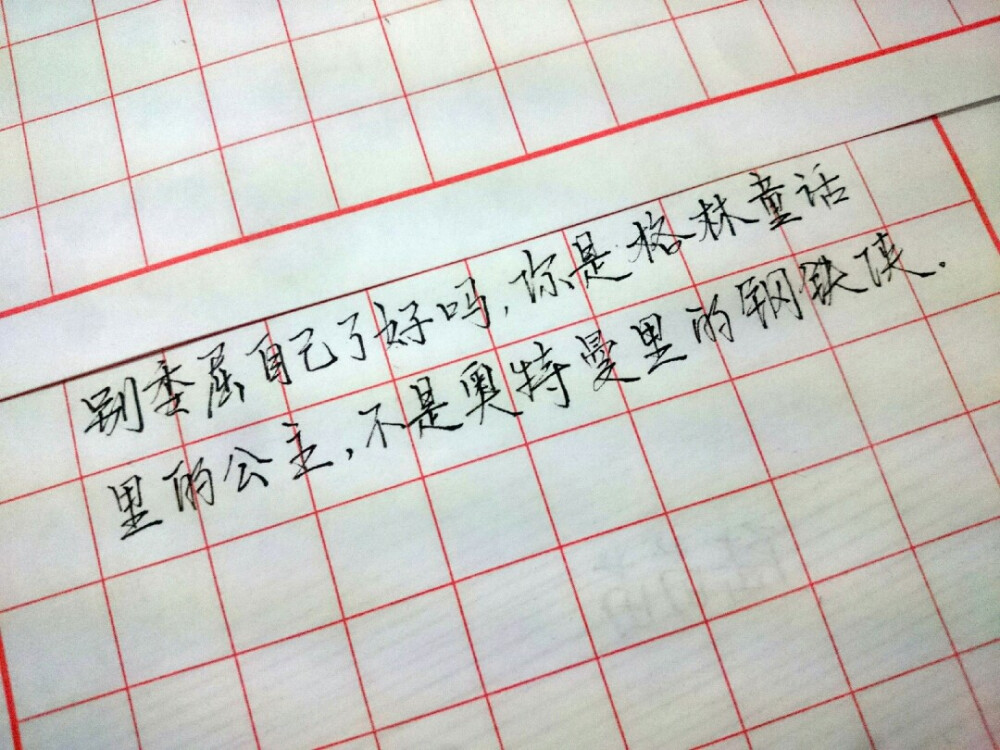 别委屈自己了好吗,你是格林童话
里的公主,不是奥特曼里的钢铁侠.